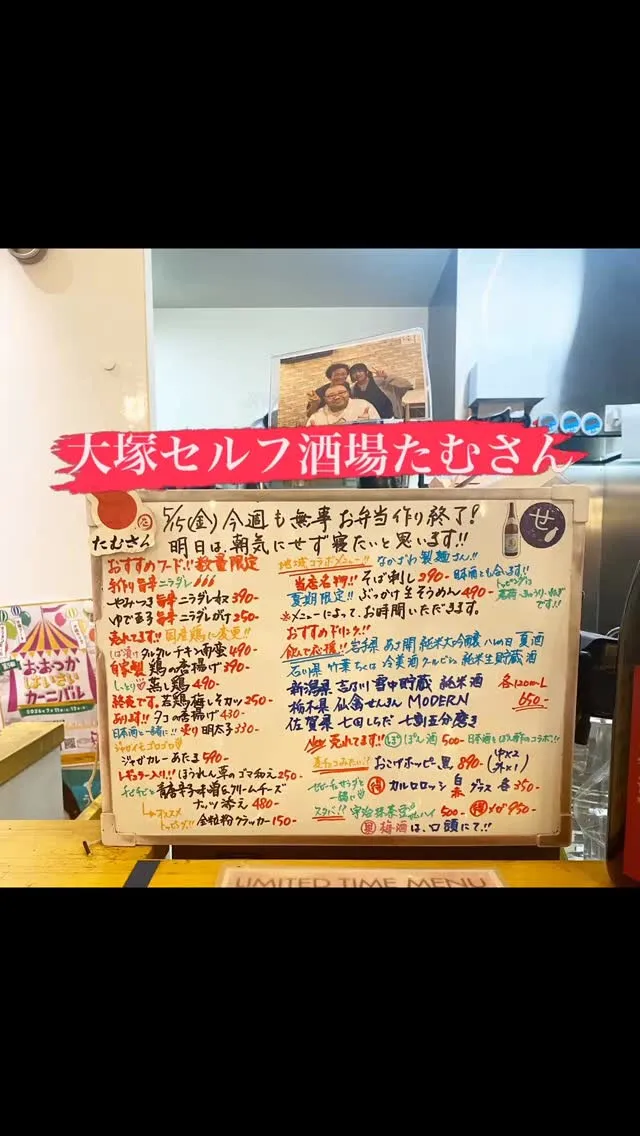 大塚セルフ酒場たむさん
たむさん
5/15(金) 今週も無事お弁当作り終了!
明日は、朝気にせず寝たいと思います!!
せ
おすすめフード!! 数量限定
手作り旨辛ニラダレ
やみつき旨辛ニラダレ 390-
ゆで玉子ニラダレがけ 250-
売れてます!! 国産鶏に変更!!
しば漬けタルタルチキン南蛮 490-
自家製 鶏の唐揚げ 390-
しっとり 蒸し鶏 490-
終売です。若鶏梅しそカツ 250-
あります!! タコの唐揚げ 430-
日本酒と一緒に!! 炙り明太子 330-
ジャガイモゴロゴロ
ジャガカレーあたま 590-
レギュラー入り!! ほうれん草のゴマ和え 250-
チビチビと 青唐辛子味噌&クリームチーズ
ナッツ添え 480-
オススメ
トッピング!! 全粒粉クラッカー 150-
地域コラボメニュー!! なかざわ製麺さん!!
当店名物!! そば刺し 390- 日本酒とも合います!!
夏期限定!! ぶっかけ生そうめん 490-
トッピングは
茗荷・きゅうり・ねぎ
です!!
※メニューによって、お時間いただきます。
おすすめドリンク!!
飲んで応援!! 岩手県 あさ開 純米大吟醸 八の日 夏酒
石川県 竹葉 ちくは 冷美酒 クールビシュ 純米生貯蔵酒
新潟県 吉乃川 雪中貯蔵 純米酒
栃木県 仙禽 せんきん MODERN
佐賀県 七田 しちだ 七割五分磨き
各120ML
650-
New 売れてます!! ぽん酒 500- 日本酒とぽん酢のコラボ!!
麦チョコみたい!? おこげホッピー黒 890- (中×2
外×1)
ゼヒチーズサラダと
一緒に カルロロッシ 白
赤 グラス 各350-
スタバ!? 宇治抹茶豆乳ハイ 500- 得メガ 950-
夏 梅酒は、口頭にて!!
おおつか
はしぱいさい
カーニバル
LIMITED TIME MENU